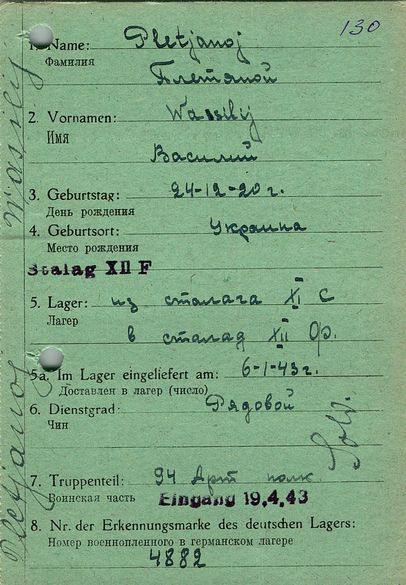 130
1. Name: Pletjanoj
Фамилия
Блетяной
2. Vornamen: Wassilij
Имя
Василий
3. Geburtstag: 24-12-20 г.
День рождения
4. Geburtsort: Украина
Место рождения
Stalag XII F
5. Lager: из сталага XI С
Лагер
в сталаг XII Ф.
5a. Im Lager eingeliefert am: 6-1-43 г.
Доставлен в лагер (число)
6. Dienstgrad: Рядовой
Чин
Sold.
7. Truppenteil: 94 Арт полк
Воинская часть Eingang 19.4.43
8. Nr. der Erkennungsmarke des deutschen Lagers:
Номер военнопленного в германском лагере
4882
Pletjanoj Wassilij